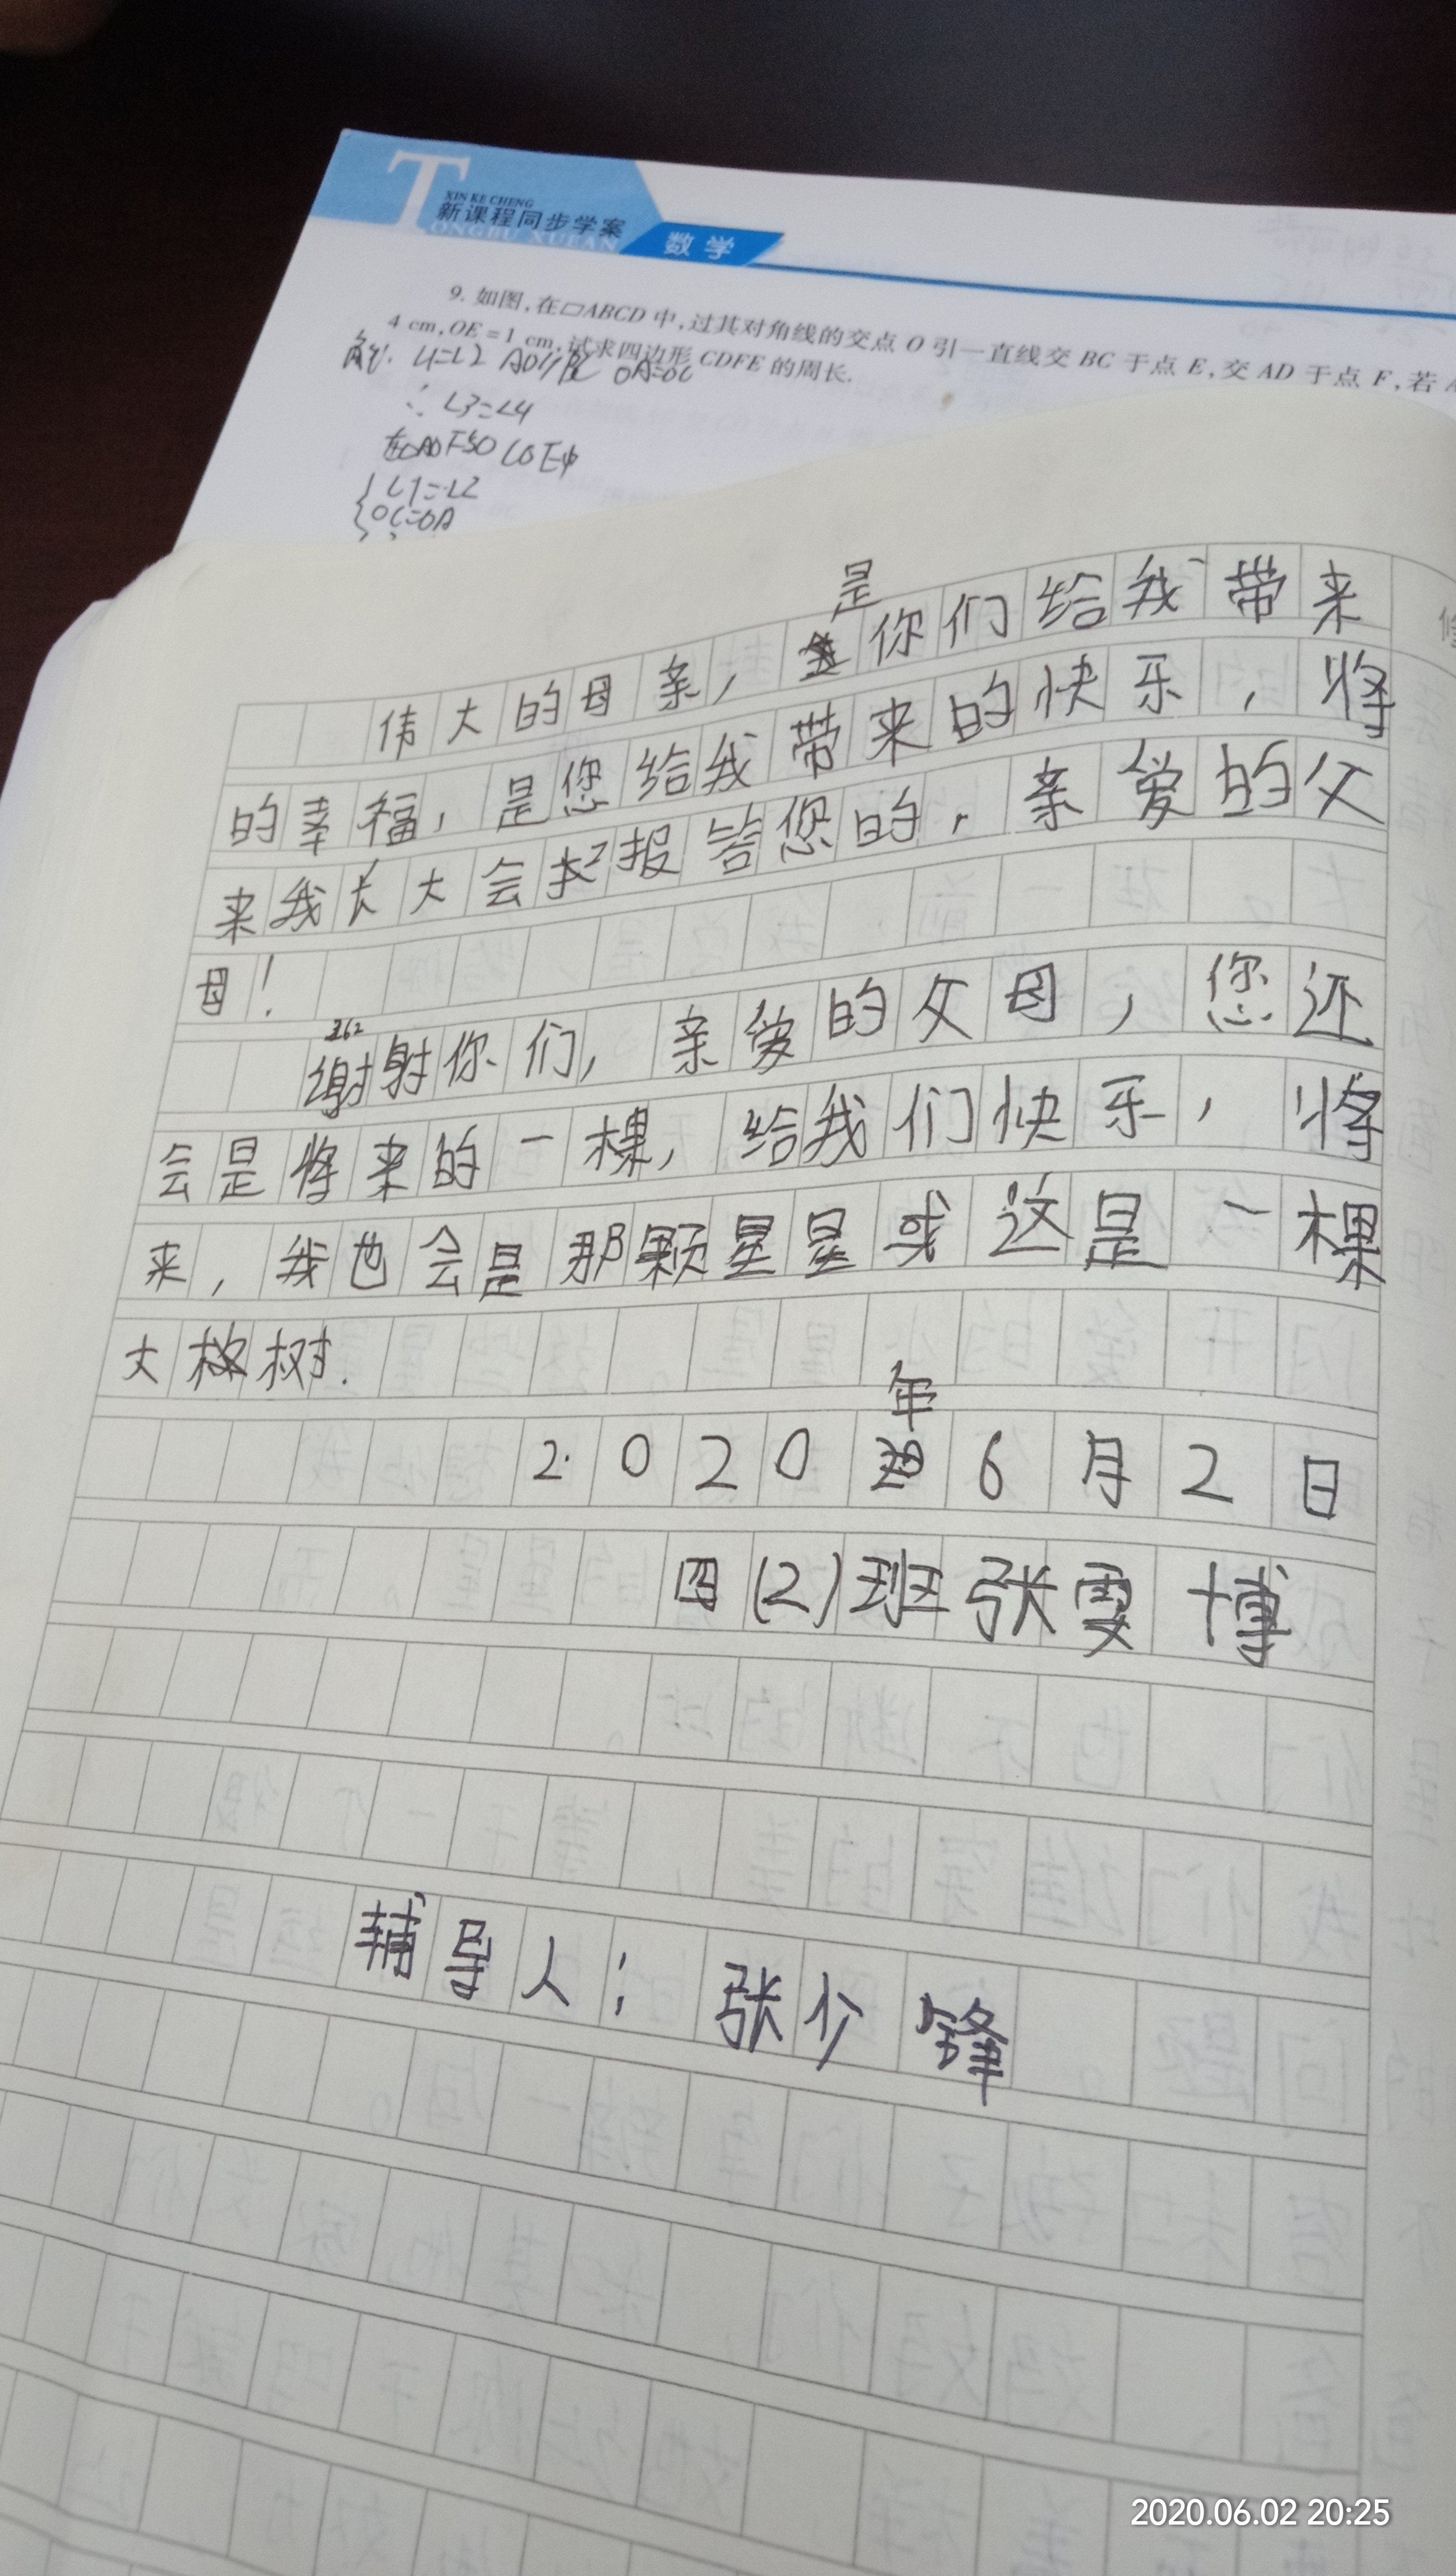 XIN KE CHENG
新课程同步学案
TONGBU XUEAN
数学
9. 如图,在▱ABCD中,过其对角线的交点O引一直线交BC于点E,交AD于点F,若
4 cm,OE=1 cm,试求四边形CDFE的周长.
解: ∠1=∠2 AD∥BC OA=OC
∴ ∠3=∠4
∠1=∠2
OC=OA
是
伟大的母亲,你们给我带来
的幸福,是您给我带来的快乐,将
来我长大会报答您的,亲爱的父
母!
谢谢你们,亲爱的父母,您还
会是将来的一棵,给我们快乐,将
来,我也会是那颗星星或这是一棵
大树.
年
2020 6月2日
四(2)班张雯博
辅导人:张少锋
2020.06.02 20:25